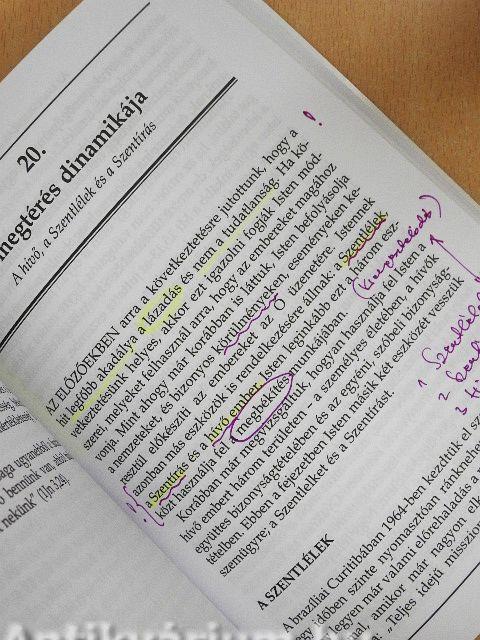 20.
megtérés dinamikája
A hívő, a Szentlélek és a Szentírás
AZ ELŐZŐEKBEN arra a következtetésre jutottunk, hogy a
hit legfőbb akadálya a lázadás és nem a tudatlanság. Ha kö-
vetkeztetésünk helyes, akkor ezt igazolni fogják Isten mód-
szerei, melyeket felhasznál arra, hogy az embereket magához
vonja. Mint ahogy már korábban is láttuk, Isten befolyásolja
a nemzeteket, és bizonyos körülményeken, eseményeken ke-
resztül előkészíti az embereket az Ő üzenetére. Istennek
azonban más eszközök is rendelkezésére állnak: a Szentlélek,
a Szentírás és a hívő ember. Isten leginkább ezt a három esz-
közt használja fel a megbékítő munkájában.
Korábban már megvizsgáltuk, hogyan használja fel Isten a
hívő embert három területen – a személyes életében, a hívők
együttes bizonyságtételében és az egyéni, szóbeli bizonyság-
tételben. Ebben a fejezetben Isten másik két eszközét vesszük
szemügyre, a Szentlelket és a Szentírást.
A SZENTLÉLEK
A brazíliai Curitibában 1964-ben kezdtük el
időben szinte nyomasztóan ránk
legyen már valami előrehaladás a
amikor már nagyon el
"Teljes idejű misszio
nekünk" (1Jn 3,24).
!
1
2
3
Antikvárium